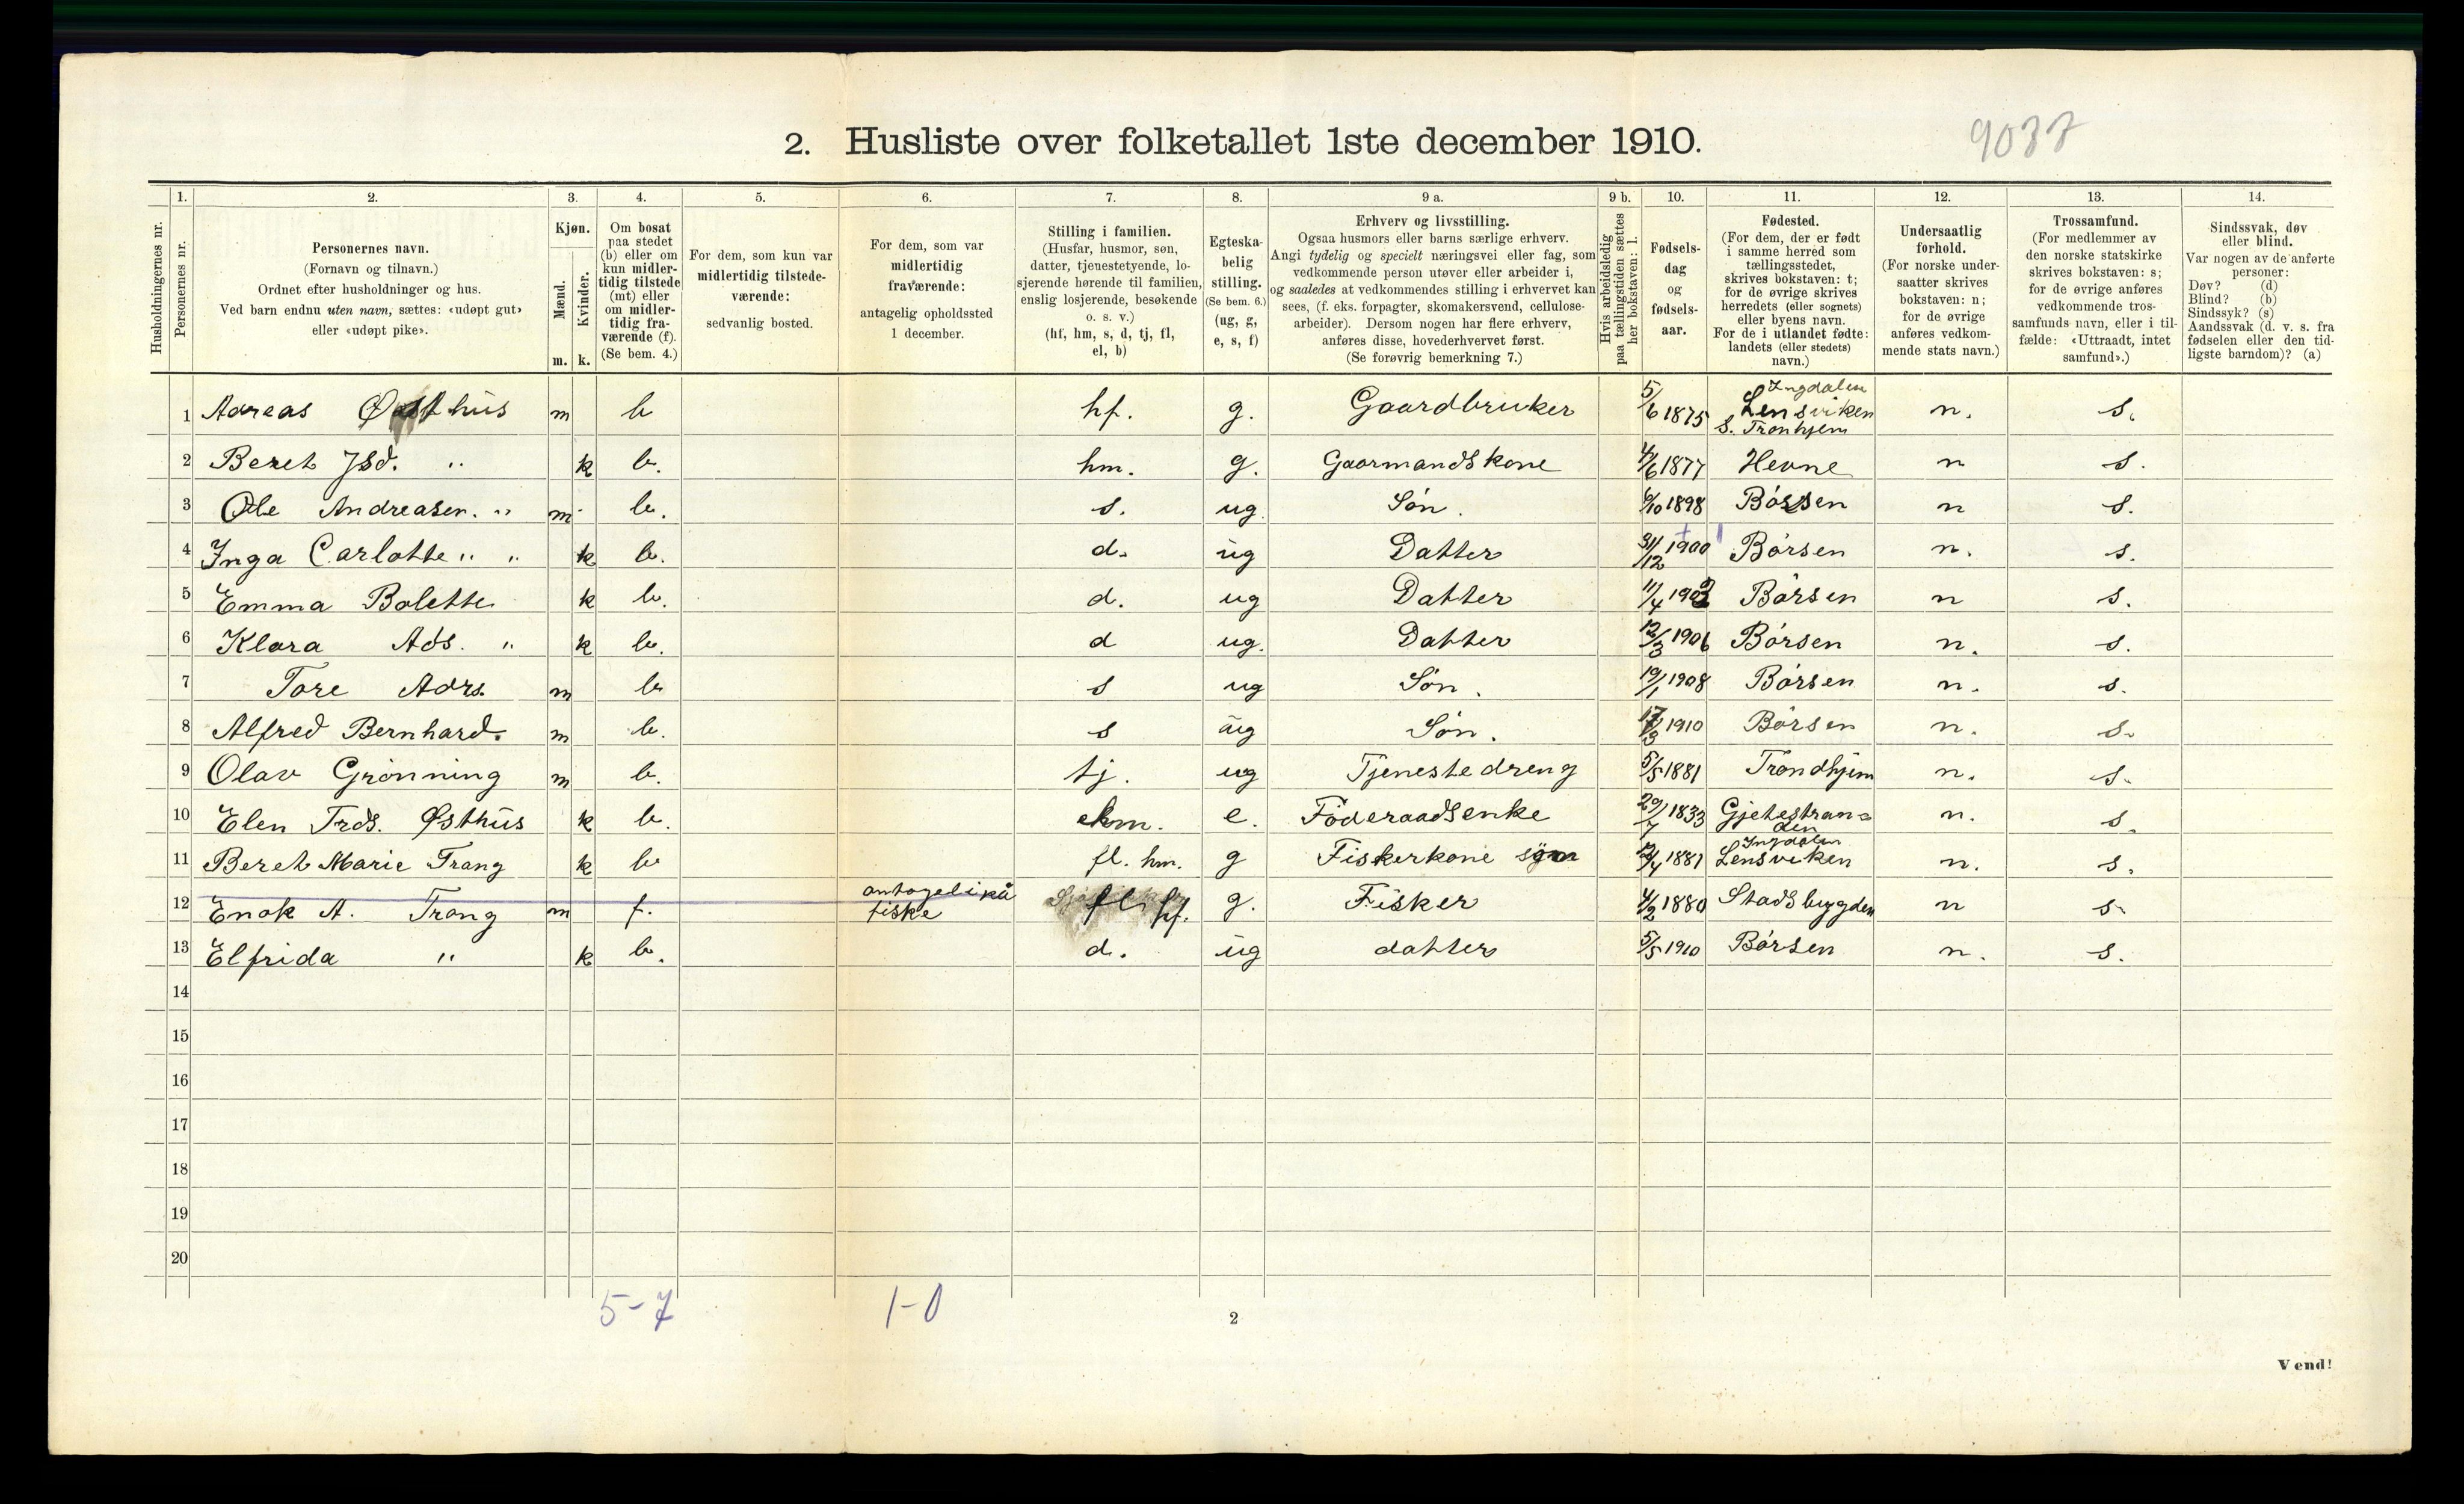 2. Husliste over folketallet 1ste december 1910.
9037
Husholdningernes nr.
1. Personernes nr.
2. Personernes navn. (Fornavn og tilnavn.) Ordnet efter husholdninger og hus. Ved barn endnu uten navn, sættes: «udøpt gut» eller «udøpt pike».
3. Kjøn. Mænd. m. Kvinder. k.
4. Om bosat paa stedet (b) eller om kun midlertidig tilstede (mt) eller om midlertidig fraværende (f). (Se bem. 4.)
5. For dem, som kun var midlertidig tilstedeværende: sedvanlig bosted.
6. For dem, som var midlertidig fraværende: antagelig opholdssted 1 december.
7. Stilling i familien. (Husfar, husmor, søn, datter, tjenestetyende, losjerende hørende til familien, enslig losjerende, besøkende o. s. v.) (hf, hm, s, d, tj, fl, el, b)
8. Egteskabelig stilling. (Se bem. 6.) (ug, g, e, s, f)
9 a. Erhverv og livsstilling. Ogsaa husmors eller barns særlige erhverv. Angi tydelig og specielt næringsvei eller fag, som vedkommende person utøver eller arbeider i, og saaledes at vedkommendes stilling i erhvervet kan sees, (f. eks. forpagter, skomakersvend, cellulosearbeider). Dersom nogen har flere erhverv, anføres disse, hovederhvervet først. (Se forøvrig bemerkning 7.)
9 b. Hvis arbeidsledig paa tællingstiden sættes her bokstaven: l.
10. Fødselsdag og fødselsaar.
11. Fødested. (For dem, der er født i samme herred som tællingsstedet, skrives bokstaven: t; for de øvrige skrives herredets (eller sognets) eller byens navn. For de i utlandet fødte: landets (eller stedets) navn.)
12. Undersaatlig forhold. (For norske undersaatter skrives bokstaven: n; for de øvrige anføres vedkommende stats navn.)
13. Trossamfund. (For medlemmer av den norske statskirke skrives bokstaven: s; for de øvrige anføres vedkommende trossamfunds navn, eller i tilfælde: «Uttraadt, intet samfund».)
14. Sindssvak, døv eller blind. Var nogen av de anførte personer: Døv? (d) Blind? (b) Sindssyk? (s) Aandssvak (d. v. s. fra fødselen eller den tidligste barndom)? (a)
1 Adreas Østhus m b hf. g. Gaardbruker 5/6 1875 Ingdalen Lensviken S. Tronhjem n. s.
2 Beret Jsd. " k b. hm. g. Gaarmandskone 4/6 1877 Hevne n s.
3 Ole Andreasen. " m b. s. ug. Søn. 6/10 1898 Børsen n s.
4 Inga Carlotte " " k b. d. ug Datter 31/12 1900 Børsen n. s.
5 Emma Bolette k b. d. ug Datter 11/4 1903 Børsen n s.
6 Klara Ads. " k b. d ug. Datter 12/3 1906 Børsen n. s.
7 Tore Adrs. m b s ug Søn. 19/1 1908 Børsen n. s.
8 Alfred Bernhard. m b. s ug Søn. 17/3 1910 Børsen n. s.
9 Olav Grønning m b. tj. ug Tjenestedreng 5/5 1881 Trondhjem n. s.
10 Elen Trds. Østhus k b. e. Föderaadsenke 29/7 1833 Gjetastranden n. s.
11 Beret Marie Trang k b fl. hm. g Fiskerkone 1881 Ingdalen Lensviken n. s.
12 Enok A. Trang m f. antageli på fiske fl. hf. g. Fisker 4/2 1880 Stadsbygden n s.
13 Elfrida " k b. d. ug datter 5/5 1910 Børsen n. s.
14
15
16
17
18
19
20
5-7 1-0
2
Vend!